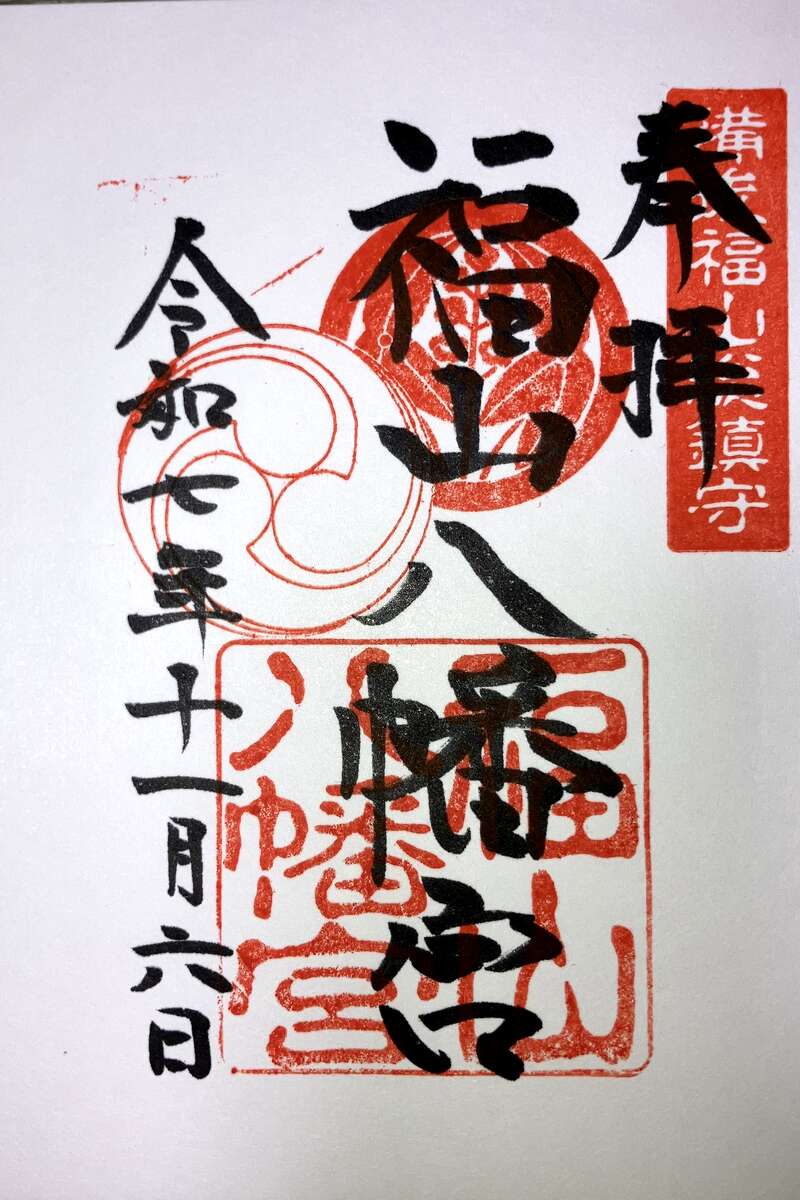 備後福山総鎮守
奉拝
福山八幡宮
福山
八幡宮
令和七年十一月六日